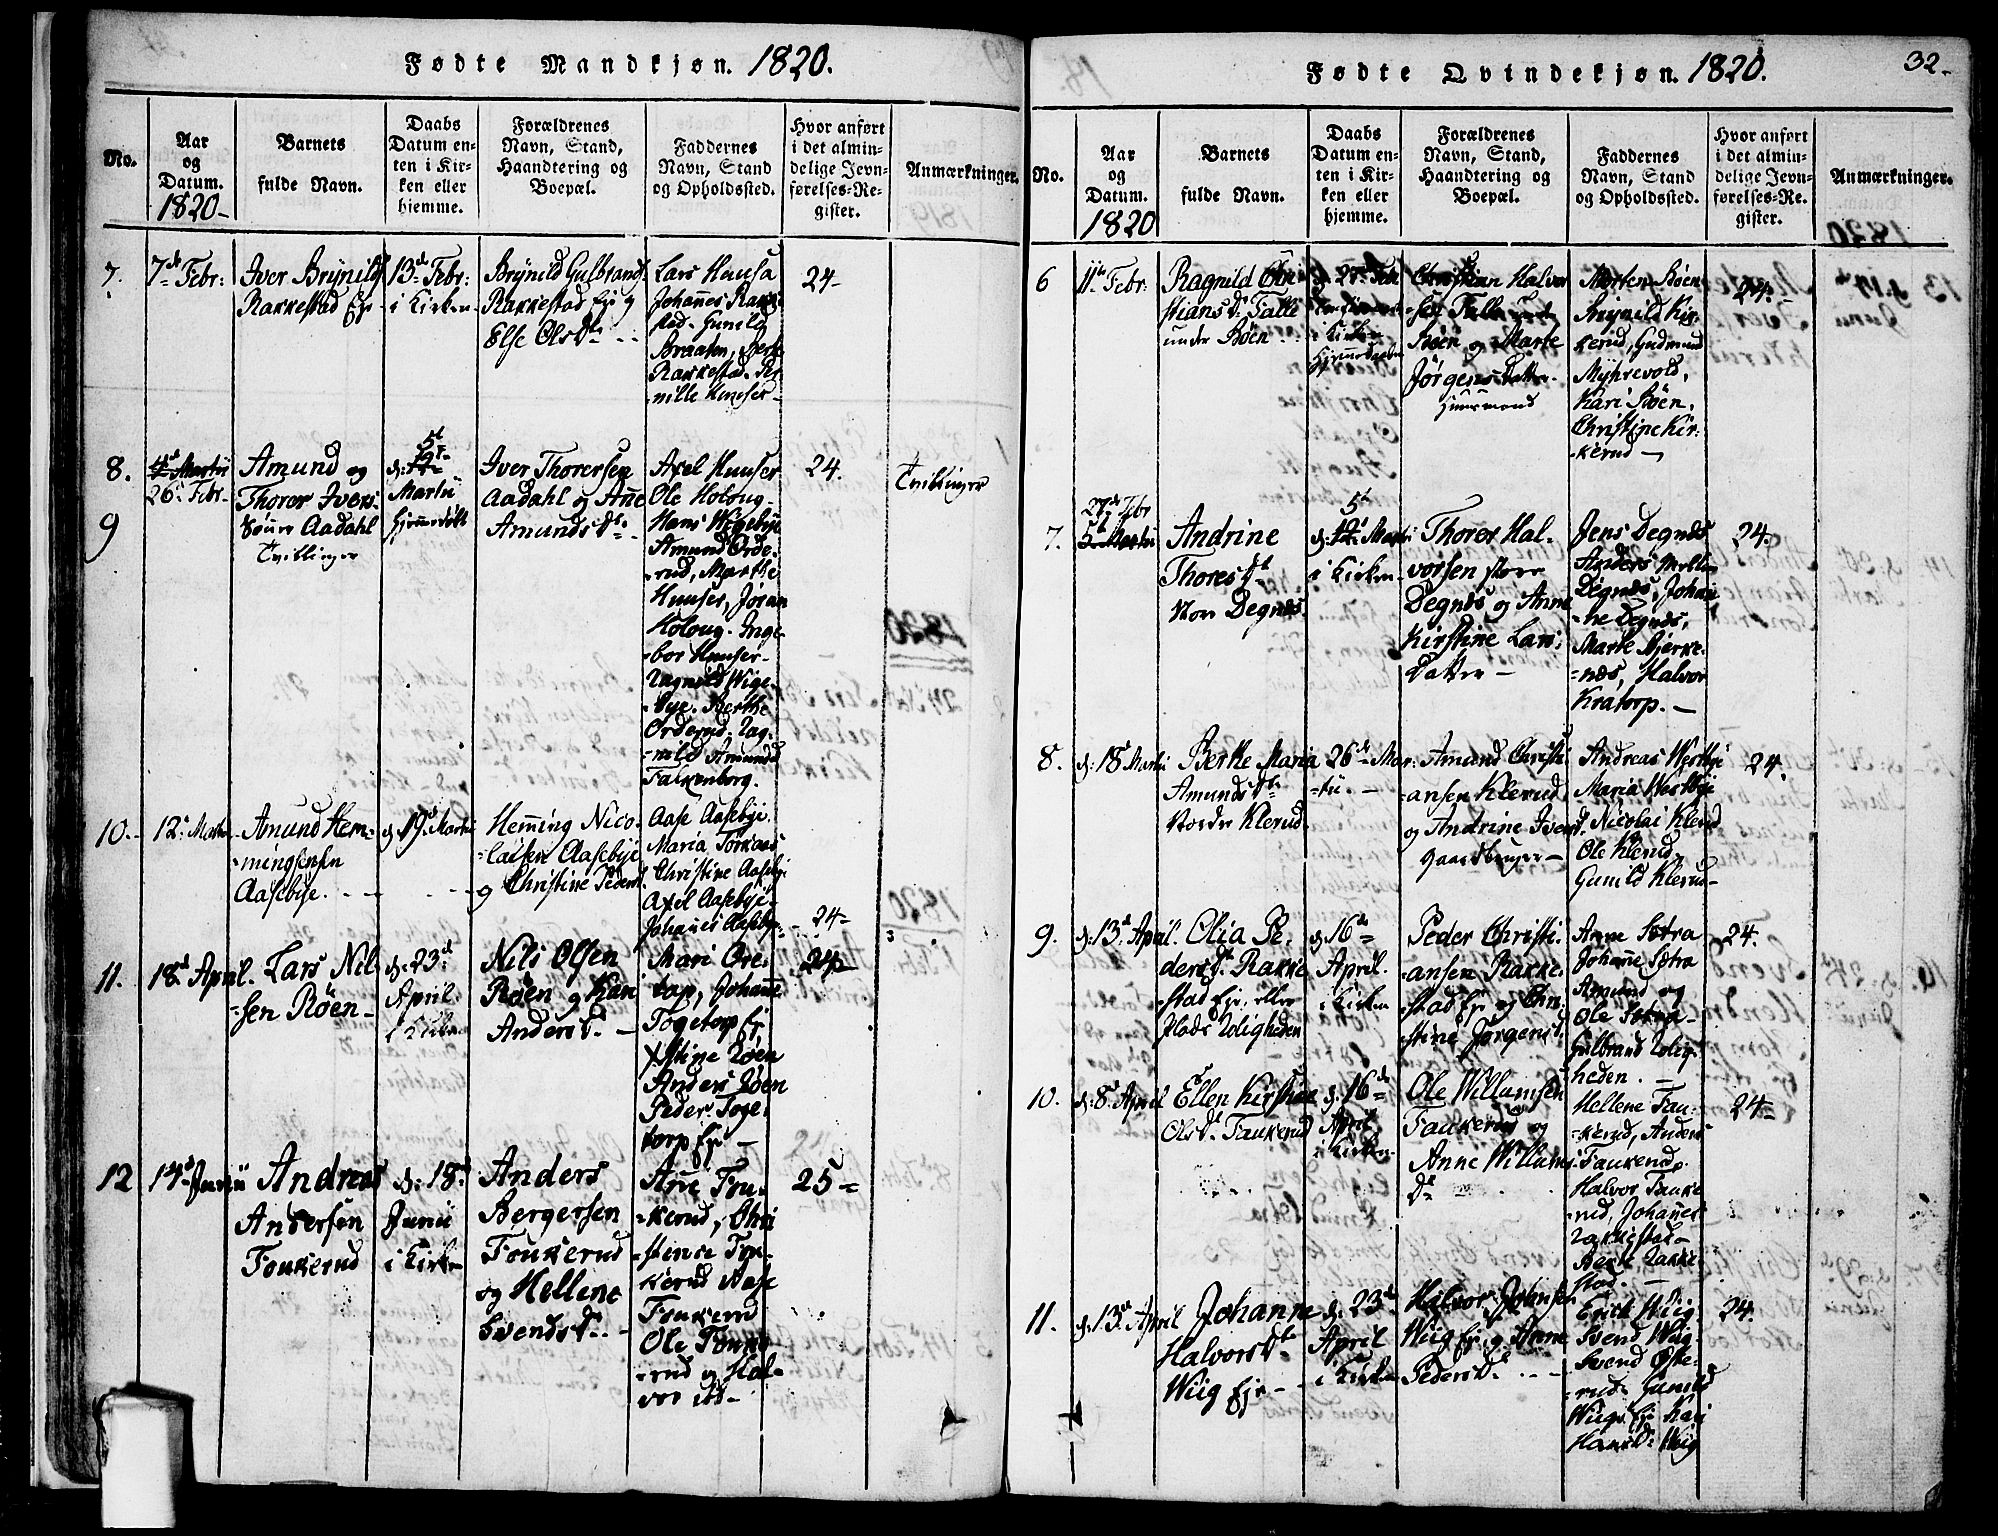 Fødte Mandkjøn. 1820.
No.
Aar
og
Datum.
1820-
Barnets
fulde Navn.
Daabs
Datum en-
ten i Kir-
ken eller
hjemme.
Forældrenes
Navn, Stand,
Haandtering og
Boepæl.
Faddernes
Navn, Stand
og Opholdssted.
Hvor anført
i det almin-
delige Jevn-
førelses-Re-
gister.
Anmærkninger.
7.
7de Febr:
Iver Brynilds
Rakkestad Eje
13de Febr:
i Kirken
Brynild Gulbrands
Rakkestad Eje og
Else Olsdr
Lars Huusa
Johannes Rakke
stad. Gunild
Braaten, Berte
Rakkestad. Per
nille Huuser
24
8.
9
4de Martii
26de Febr
Amund og
Thorer Ivers-
Sønner Aadahl
Tvillinger
5t
d: 12t
Martii
hjemmedøbt
Iver Thorersen
Aadahl og Anne
Amundsdr
Axel Huuser
Ole Holoug-
Hans Wigebye
Amund Orde-
rud, Marthe
Huuser, Joran
Holoug. Inge-
bor Huuser-
Ragnild Wige-
bye. Berthe
Orderud. Rag-
nild Amunds
Falkenborg.
24.
Tvillinger
10.
12t Martii
Amund Hem-
mingsensen
Aasebye.
d. 19de Martii
Hemming Nico-
laisen Aasebye
og Christine Peders
Aase Aasebye.
Maria Torkaas
Christine Aaseby
Axel Aasebye-
Johannes Aaseby
24-
11.
18d April.
Lars Nil
sen Røen
d: 23d
April
i Kirken
Nils Olsen
Røen og Kari
Andersd
Mari Ore-
tap, Johanne
Togetorp Ej
Stine Røen
Anders Røen
Peder Toge-
torp Eje
24
12
14d Junii
Andreas
Andersen
Foukerud
d: 18d
Junii
i Kirken
Anders
Bergersen
Foukerud
og Hellene
Svendsd
Anne Fou-
kerud, Chri
stense Fou-
kerud Aase
Foukerud
Ole Fouke
rud og Hal-
vor ibd
25
Fødte Qvindekjøn. 1820.
32.
No.
Aar
og
Datum.
1820
Barnets
fulde Navn.
Daabs
Datum en-
ten i Kir-
ken eller
hjemme.
Forældrenes
Navn, Stand,
Haandtering og
Boepæl.
Faddernes
Navn, Stand
og Opholdssted.
Hvor anført
i det almin-
delige Jevn-
førelses-Re-
gister.
Anmærkninger.
6
11te Febr:
Ragnild Chri
stiansd: Talle
under Bøen
d. 27de Febr
i Kirken
hjemmedøbt
Christian Halvor
sen Talle under
Bøen og Marte
Jørgens Datter.
Huusmand
Morten Bøen
Brynild Kir
kerud, Gudmund
Myhrevold,
Kari Bøen,
Christine Kir-
kerud
24.
7.
27de Febr
5t Martii
Andrine
Thoresdt
Stor Degnes
5t
d: 12t Marti
i Kirken
Thorer Hal-
vorsen store
Degnes og Anne
Kirstine Lars
Datter
Jens Degnes
Anders Mellem
Degnes, Johan
ne Degnes,
Marte Bjerke-
nes, Halvor
Kratorp.
24.
8.
d: 18t Martii
Berthe Maria
Amundsdt
Nordre Klerud
26de Mar-
tii.
Amund Christi
ansen Klerud
og Andrine Iversd
gaardbruger
Andreas Westbye
Maria Westbye
Nicolai Klerud
Ole Klerud
Gunild Klerud
24.
9.
d: 13d April.
Olia Pe-
dersd: Rakke
stad Eje. eller
Plads Roligheden
d. 16de
April.
i Kirken
Peder Christi-
ansen Rakke-
stad Eje og Chri-
stine Jørgensd
Anne Sotra
Johanne Sotra
Amund og
Ole Sotra
Gulbrand Rolig-
heden.
24.
10.
d: 8d April
Ellen Kirstine
Olsd: Faukerud
d. 16de
April
i Kirken
Ole Willumsen
Faukerud og
Anne Willums
Dr
Hellene Fau-
kerud, Anders
Faukerud.
Halvor Fauke
rud, Johannes
Rakkestad
Berte Rakke-
stad.
24
11.
d. 13d April
Johanne
Halvorsdt
Wiig Eje
d. 23de
April
i Kirken
Halvor Johnsen
Wiig Eje og Anne
Pedersd
Erich Wiig
Svend Wiig
Svend Øste-
rud. Gunild
Wiigs Eje Kari
Hansd: Wiig
24.